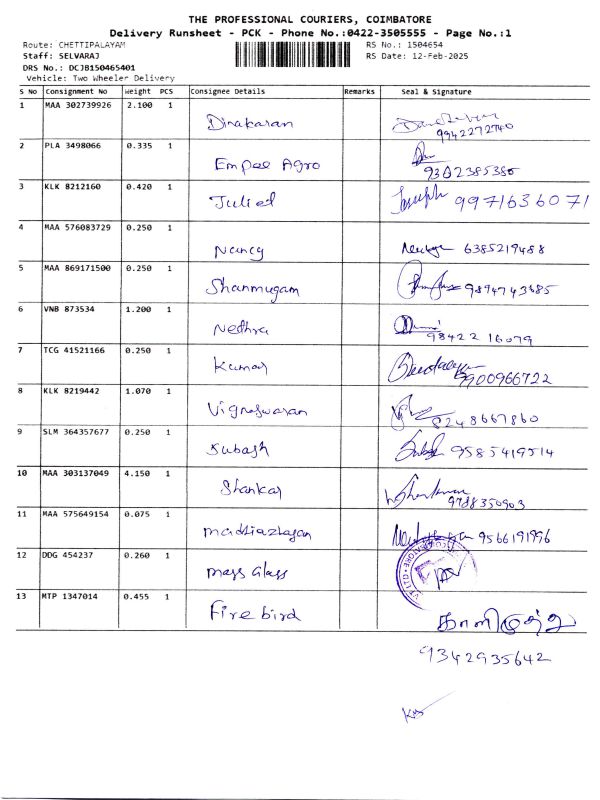 THE PROFESSIONAL COURIERS, COIMBATORE
Delivery Runsheet - PCK - Phone No.:0422-3505555 - Page No.:1
Route: CHETTIPALAYAM RS No.: 1504654
Staff: SELVARAJ RS Date: 12-Feb-2025
DRS No.: DCJB150465401
Vehicle: Two Wheeler Delivery
S No Consignment No Weight PCS Consignee Details Remarks Seal & Signature
1 MAA 302739926 2.100 1
Dinakaran
9942272740
2 PLA 3498066 0.335 1
Empee Agro
9302385385
3 KLK 8212160 0.420 1
Juliet Joseph 9971636071
4 MAA 576083729 0.250 1
Nancy 6385219488
5 MAA 869171500 0.250 1
Shanmugam 9894743685
6 VNB 873534 1.200 1
Nethra
98422 16079
7 TCG 41521166 0.250 1
Kumar
9900966722
8 KLK 8219442 1.070 1
Vigneswaran 8248667860
9 SLM 364357677 0.250 1
Subash 9585419514
10 MAA 303137049 4.150 1
Shankar
9788350903
11 MAA 575649154 0.075 1
Mathiazhagan 9566191996
12 DDG 454237 0.260 1
Mass Glass
13 MTP 1347014 0.455 1
Fire bird காளிமுத்து
9342935642